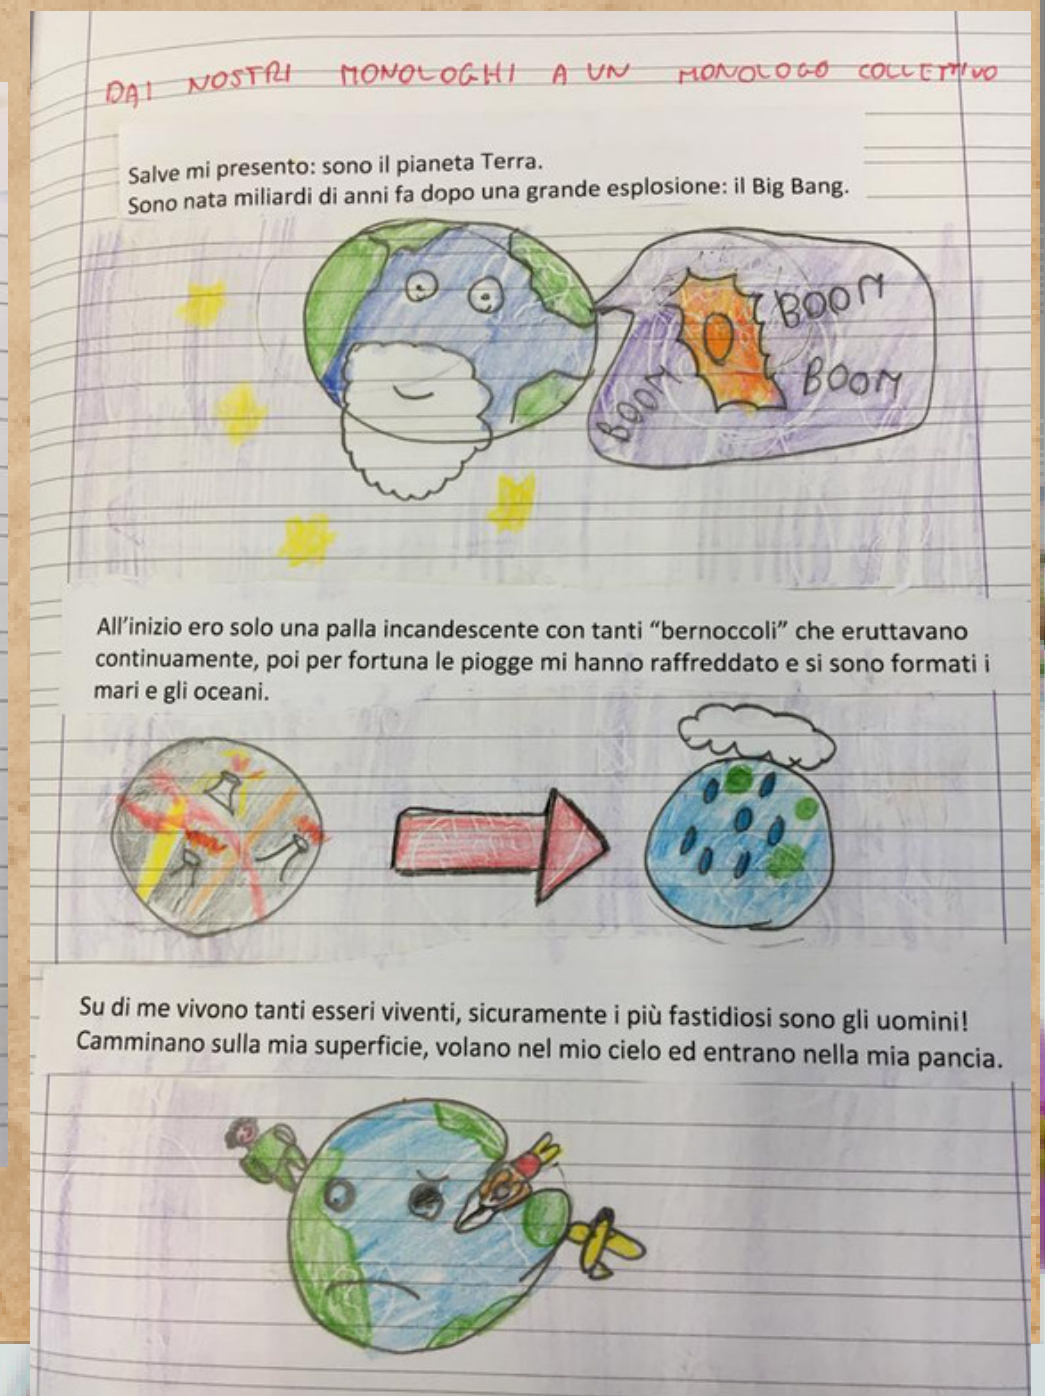 DAI NOSTRI MONOLOGHI A UN MONOLOGO COLLETTIVO
Salve mi presento: sono il pianeta Terra.
Sono nata miliardi di anni fa dopo una grande esplosione: il Big Bang.
BOOM
BOOM
BOOM
All'inizio ero solo una palla incandescente con tanti “bernoccoli” che eruttavano
continuamente, poi per fortuna le piogge mi hanno raffreddato e si sono formati i
mari e gli oceani.
Su di me vivono tanti esseri viventi, sicuramente i più fastidiosi sono gli uomini!
Camminano sulla mia superficie, volano nel mio cielo ed entrano nella mia pancia.